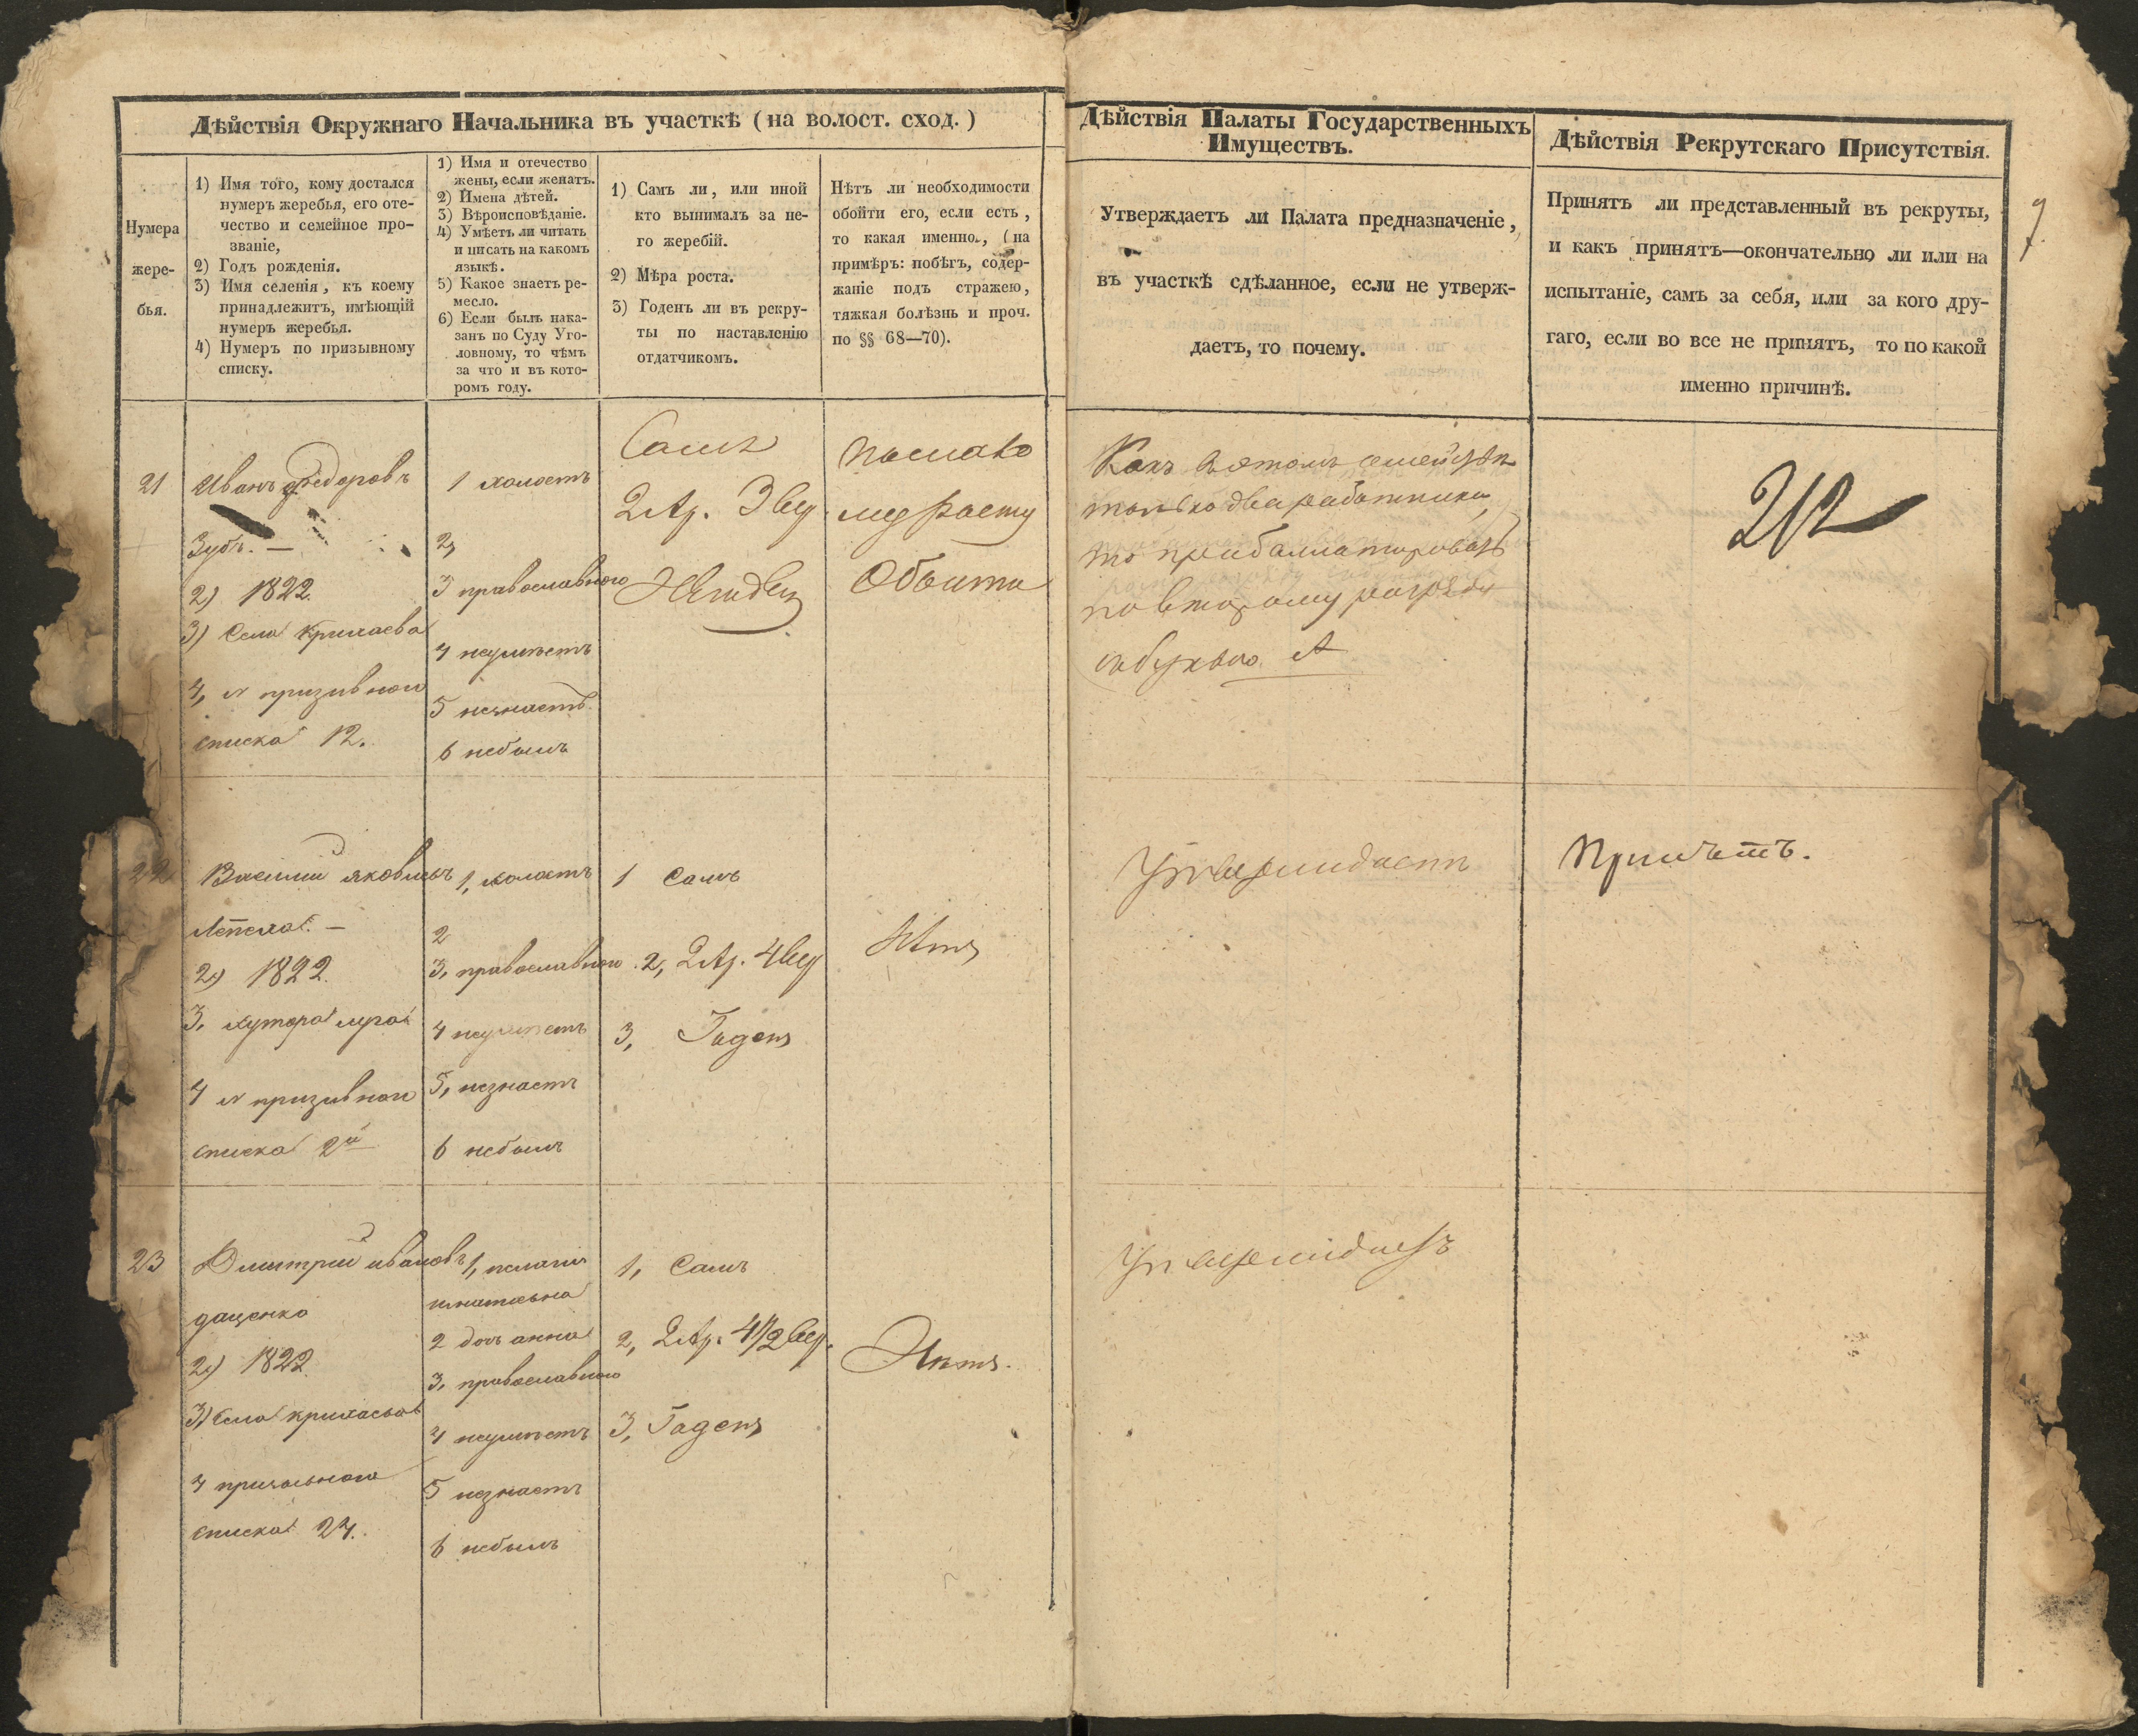 Дѣйствія Окружнаго Начальника въ участкѣ (на волост. сход.)
Нумера
жере-
бья.
1) Имя того, кому достался
нумеръ жеребья, его оте-
чество и семейное про-
званіе,
2) Годъ рожденія.
3) Имя селенія, къ коему
принадлежитъ, имѣющій
нумеръ жеребья.
4) Нумеръ по призывному
списку.
1) Имя и отечество
жены, если женатъ.
2) Имена дѣтей.
3) Вѣроисповѣданіе.
4) Умѣетъ ли читать
и писать на какомъ
языкѣ.
5) Какое знаетъ ре-
месло.
6) Если былъ нака-
занъ по Суду Уго-
ловному, то чѣмъ
за что и въ кото-
ромъ году.
1) Самъ ли, или иной
кто вынималъ за не-
го жеребій.
2) Мѣра роста.
3) Годенъ ли въ рекру-
ты по наставленію
отдатчикомъ.
Нѣтъ ли необходимости
обойти его, если есть,
то какая именно, (на
примѣръ: побѣгъ, содер-
жаніе подъ стражею,
тяжкая болѣзнь и проч.
по §§ 68—70).
Дѣйствія Палаты Государственныхъ
Имуществъ.
Утверждаетъ ли Палата предназначеніе,
въ участкѣ сдѣланное, если не утверж-
даетъ, то почему.
Дѣйствія Рекрутскаго Присутствія.
Принятъ ли представленный въ рекруты,
и какъ принятъ—окончательно ли или на
испытаніе, самъ за себя, или за кого дру-
гаго, если во все не принятъ, то по какой
именно причинѣ.
9
21
Иванъ Федоровъ
Зубъ. —
2) 1822.
3) Села
4, N призивного
списка 12.
1 холостъ
2,
3 православного
4 неумѣетъ
5 незнаетъ
6 небылъ
Самъ
2 Ар. 3 вер
помало
му росту
Обойти
Какъ въ этомъ семействѣ
только два работника,
то
по второму разряду
съ буквою А
212
22
Василий Яковлевъ
2) 1822.
3, хутора
4 N призивного
списка 2й
1, холостъ
2
3, православного
4 неумѣетъ
5, незнаетъ
6 небылъ
1 Самъ
2, 2 Ар. 4 вер
3, Годенъ
Нѣтъ
Утверждаетъ
Принѣтъ.
23
Дмитрий Ивановъ
даценко
2) 1822
3) Села
4
списка 24.
1,
игнатьевна
2 дочь анна
3, православного
4 неумѣетъ
5 незнаетъ
6 небылъ
1, Самъ
2, 2 Ар. 4 1/2 вер.
3, Годенъ
Нѣтъ.
Утверждаетъ